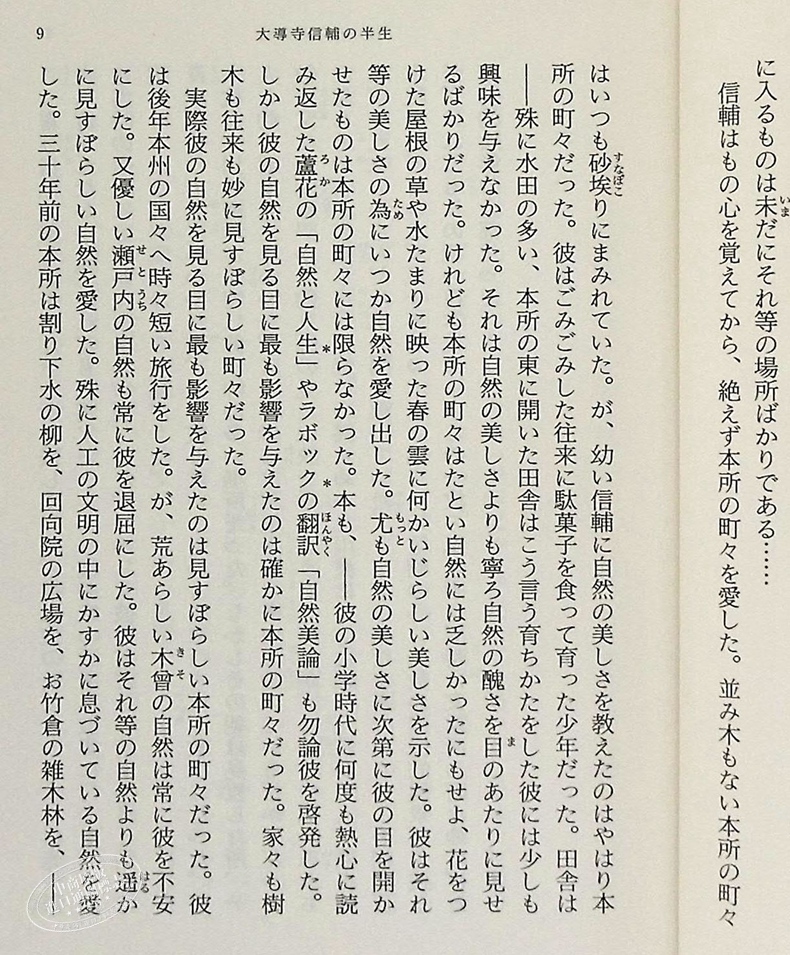 に入るものは未だにそれ等の場所ばかりである……
信輔はもの心を覚えてから、絶えず本所の町々を愛した。並み木もない本所の町々
9
大導寺信輔の半生
はいつも砂埃りにまみれていた。が、幼い信輔に自然の美しさを教えたのはやはり本
所の町々だった。彼はごみごみした往来に駄菓子を食って育った少年だった。田舎は
――殊に水田の多い、本所の東に開いた田舎はこう言う育ちかたをした彼には少しも
興味を与えなかった。それは自然の美しさよりも寧ろ自然の醜さを目のあたりに見せ
るばかりだった。けれども本所の町々はたとい自然には乏しかったにもせよ、花をつ
けた屋根の草や水たまりに映った春の雲に何かいじらしい美しさを示した。彼はそれ
等の美しさの為にいつか自然を愛し出した。尤も自然の美しさに次第に彼の目を開か
せたものは本所の町々には限らなかった。本も、――彼の小学時代に何度も熱心に読
み返した蘆花の「自然と人生」やラボックの翻訳「自然美論」も勿論彼を啓発した。
しかし彼の自然を見る目に最も影響を与えたのは確かに本所の町々だった。家々も樹
木も往来も妙に見すぼらしい町々だった。
実際彼の自然を見る目に最も影響を与えたのは見すぼらしい本所の町々だった。彼
は後年本州の国々へ時々短い旅行をした。が、荒あらしい木曾の自然は常に彼を不安
にした。又優しい瀬戸内の自然も常に彼を退屈にした。彼はそれ等の自然よりも遥か
に見すぼらしい自然を愛した。殊に人工の文明の中にかすかに息づいている自然を愛
した。三十年前の本所は割り下水の柳を、回向院の広場を、お竹倉の雑木林を、――